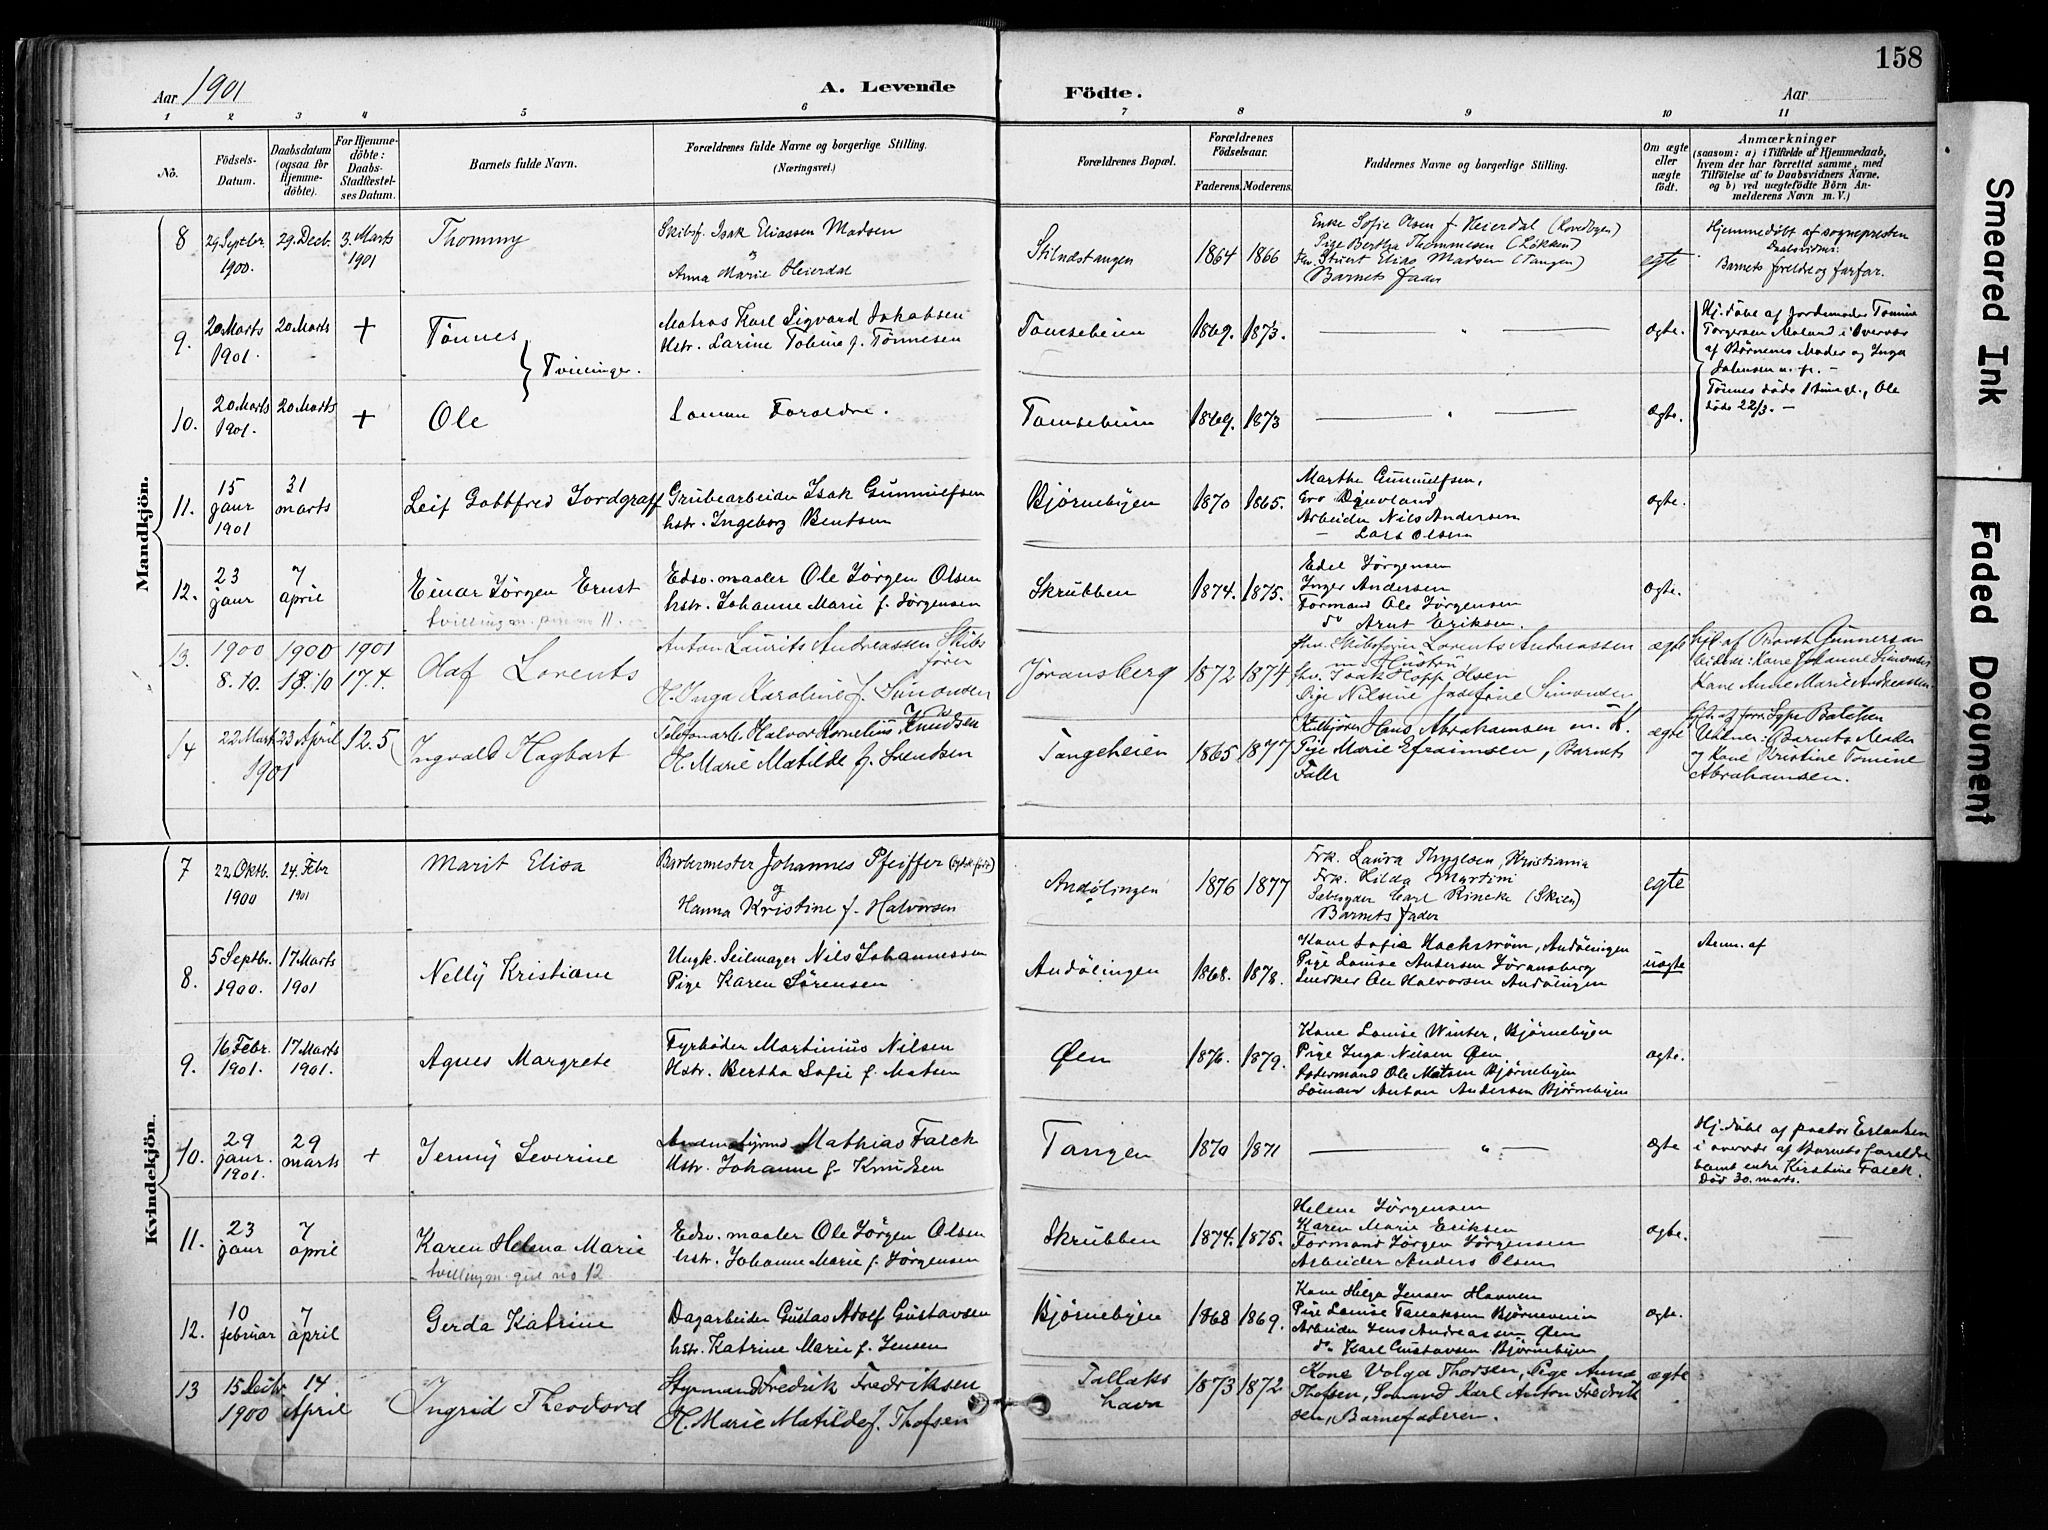 158
Aar 1901
A. Levende
Födte.
Aar
1 2 3 4 5 6 7 8 9 10 11
No.
Födsels-
Datum.
Daabsdatum
(ogsaa for
Hjemme-
döbte).
For Hjemme-
döbte:
Daabs-
Stadfæstel-
ses Datum.
Barnets fulde Navn.
Forældrenes fulde Navne og borgerlige Stilling.
(Næringsvei.)
Forældrenes Bopæl.
Forældrenes
Födselsaar.
Faderens. Moderens.
Faddernes Navne og borgerlige Stilling.
Om ægte
eller
uægte
födt.
Anmærkninger
(saasom: a) i Tilfælde af Hjemmedaab,
hvem der har forrettet samme, med
Tilföielse af to Daabsvidners Navne,
og b) ved uægtefödte Börn An-
melderens Navn m. V.)
Mandkjön.
8
29 Septbr.
1900.
29. Decb.
3. Marts
1901
Thommy
Skibsf. Isak Eliassen Madsen
og
Anna Marie Heierdal
Stilnæstangen
1864 1866
Enke Sofie Olsen f. Heierdal
Pige Bertha Thommesen (Løkken)
Elias Madsen (Tangen)
Barnets Fader
egte
Hjemmedøbt af sognepresten
Daabsvidner:
Barnets foreldre og farfar.
9.
20 Marts
1901.
20 Marts
+
Tønnes
} Tvillinger.
Matros Karl Sigvard Jakobsen
Hstr. Larine Tobine f. Tønnesen
1869. 1873.
— " —
ægte.
Hj. døbt af Jordemoder Tomine
Torgersen i Overvær
af Børnenes Moder og Inga
10.
20 Marts
1901.
20 Marts
+
Ole
Samme Foreldre.
1869. 1873
— " —
ægte.
Tønnes døde , Ole
døde 22/3. —
11.
15
janr
1901
31
marts
Leif Gottfred Jordgraff
Grubearbeider Isak Gunnulfsen
hstr. Ingeborg Bentsen
Bjørnebyen
1870 1865.
Marthe Gunnulfsen,
Arbeider Nils Andersen
— Lars Olsen
ægte.
12.
23
janr
7
april
Einar Jørgen Ernst
tvilling m. pige no 11.
Edsv. maaler Ole Jørgen Olsen
hstr. Johanne Marie f. Jørgensen
Skrubben
1874. 1875.
Edel Jørgensen
Inger Andersen
Formand Ole Jørgensen
do Arnt Eriksen.
ægte.
13.
1900
8.10.
1900
18.10
1901
17.4.
Olaf Lorents
Anton Laurits Andreassen Skibs
fører
H. Inga Karoline f. Simonsen
Jøransberg
1872 1874
Skibsfører Lorents Andreassen
m Hustru
Isak Hopp Olsen
Pige Nilsine Josefine Simonsen
ægte
Hjd. af Provst Gunnersen
Vidner: Kone Johanne Simonsen
Kone Anne Marie Andreassen
14
22 Mart
1901
23 April
12.5
Ingvald Hagbart
Telefonarb. Halvor Kornelius Knudsen
H. Marie Matilde f. Svendsen
Tangeheien
1865 1877
Hans Abrahamsen m. K.
Pige Marie Efraimsen, Barnets
Fader
ægte
Vidner: Barnets Moder
og Kone Kristine Tomine
Abrahamsen.
Kvindekjön.
7
22. Oktb.
1900
24. Febr
1901
Marit Elisa
Barbermester Johannes Pfeiffer
og
Hanna Kristine f. Halvorsen
Andølingen
1876 1877
Frk. Laura Thygesen, Kristiania
Frk. Lilda Martini
Carl Rincke (Skien)
Barnets Fader
egte
8.
5 Septbr.
1900.
17 Marts
1901
Nelly Kristiane
Ungk. Seilmager Nils Johannessen
Pige Karen Sørensen
Andølingen
1868. 1878.
Kone Sofie Hachstrøm, Andølingen
Pige Louise Andersen Jøransberg
Snedker Ole Halvorsen Andølingen
uægte
Anm. af
9.
16 Febr.
1901.
17 Marts
1901.
Agnes Margrete
Fyrbøder Martinius Nilsen
Hstr. Bertha Sofie f. Matsen
Øen
1876. 1879.
Kone Louise Winter, Bjørnebyen
Pige Inga Nilsen Øen
Ole Matsen Bjørnebyen
Sømand Anton Andersen Bjørnebyen
ægte.
10.
29
janr.
1901.
29
marts
+
Jenny Severine
Mathias Falck
Hstr. Johanne f. Knudsen
Tangen
1870 1871
— " —
ægte
Hj. døbt af pastor Erlandsen
i overvær af Barnets foreldre
samt enke Kirstine Falck.
Død 30. marts.
11.
23
janr
7
april
Karen Helena Marie
tvilling m. gut no 12
Edsv. maaler Ole Jørgen Olsen
hstr. Johanne Marie f. Jørgensen
Skrubben
1874. 1875.
Helene Jørgensen
Karen Marie Eriksen
Formand Jørgen Jørgensen
Arbeider Anders Olsen
ægte.
12.
10
februar
7
april
Gerda Katrine
Dagarbeider Gustav Adolf Gustavsen
hstr. Katrine Marie f. Jensen
Bjørnebyen
1868 1869.
Kone Helga Jensen Havnen
Pige Louise Tallaksen Bjørneveien
Arbeider Jens Andreassen Øen
do Karl Gustavsen Bjørnebyen
ægte.
13
15 Decbr
1900
14
April
Ingrid Theodora
Styrmand Fredrik Fredriksen
H. Marie Matilde f. Thofsen
Tallaks
havn
1873 1872
Kone Volga Thorsen, Pige Anna
Thofsen, Sømand Karl Anton Fredrik
sen, Barnefaderen.
ægte
Smeared Ink
Faded Document